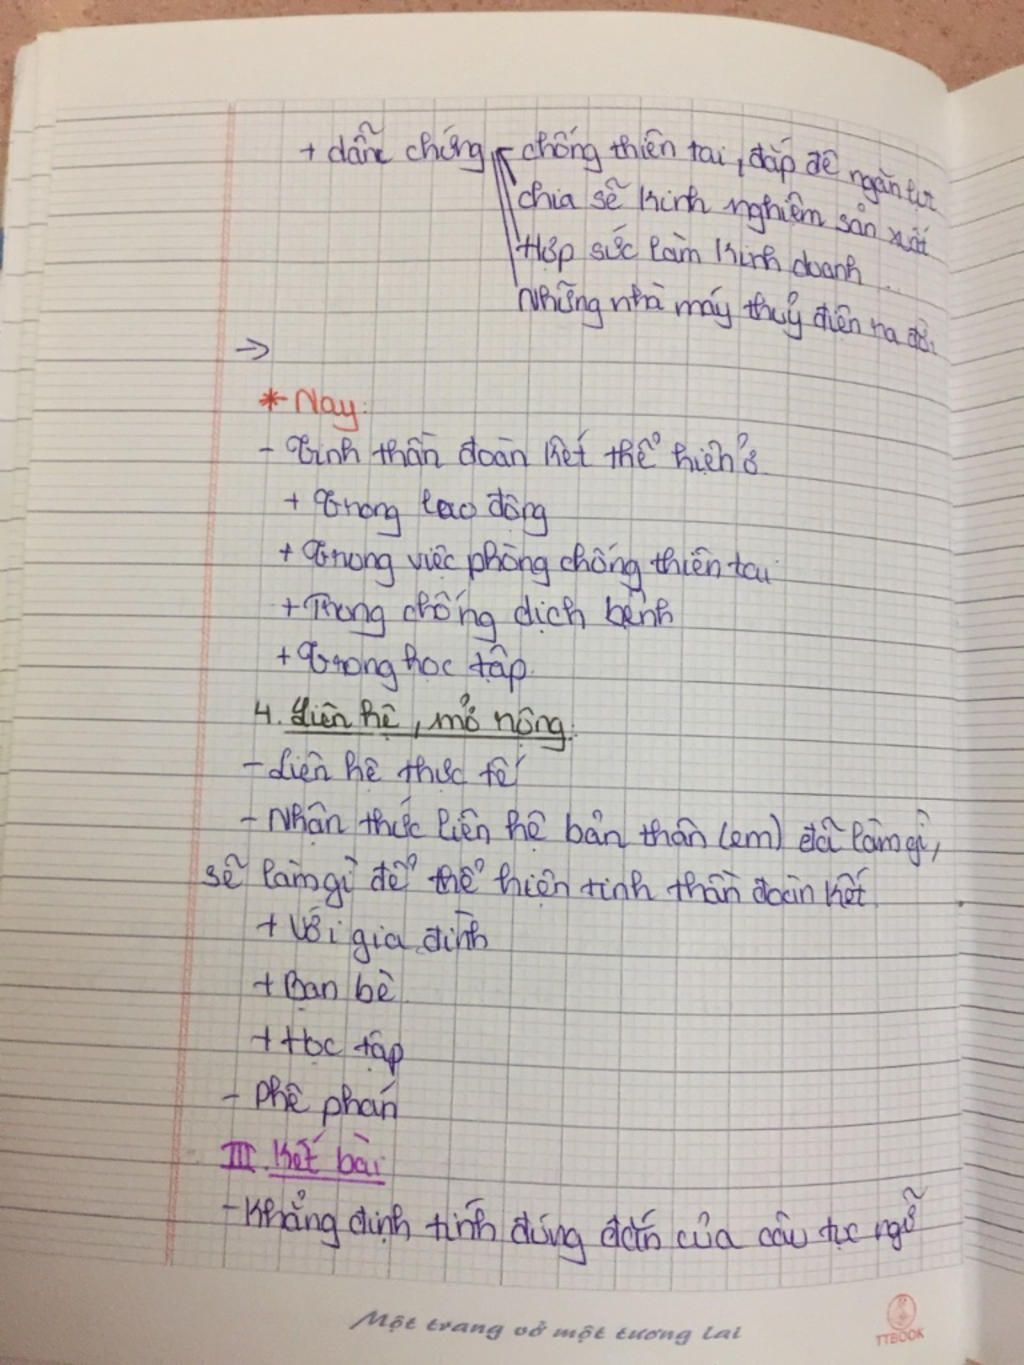 + dẫn chứng chống thiên tai, đắp đê ngăn lụt
chia sẽ kinh nghiệm sản xuất
Hợp sức làm kinh doanh...
Những nhà máy thuỷ điện ra đời
→
* Nay:
- Tinh thần đoàn kết thể hiện ở
+ Trong lao động
+ Trong việc phòng chống thiên tai
+ Trong chống dịch bệnh
+ Trong học tập.
4. Liên hệ, mở rộng:
- Liên hệ thực tế
- Nhận thức liên hệ bản thân (em) đã làm gì,
sẽ làm gì để thể hiện tinh thần đoàn kết.
+ Với gia đình
+ Bạn bè
+ Học tập
- Phê phán
III. Kết bài
- Khẳng định tính đúng đắn của câu tục ngữ
Một trang vở một tương lai
TTBOOK